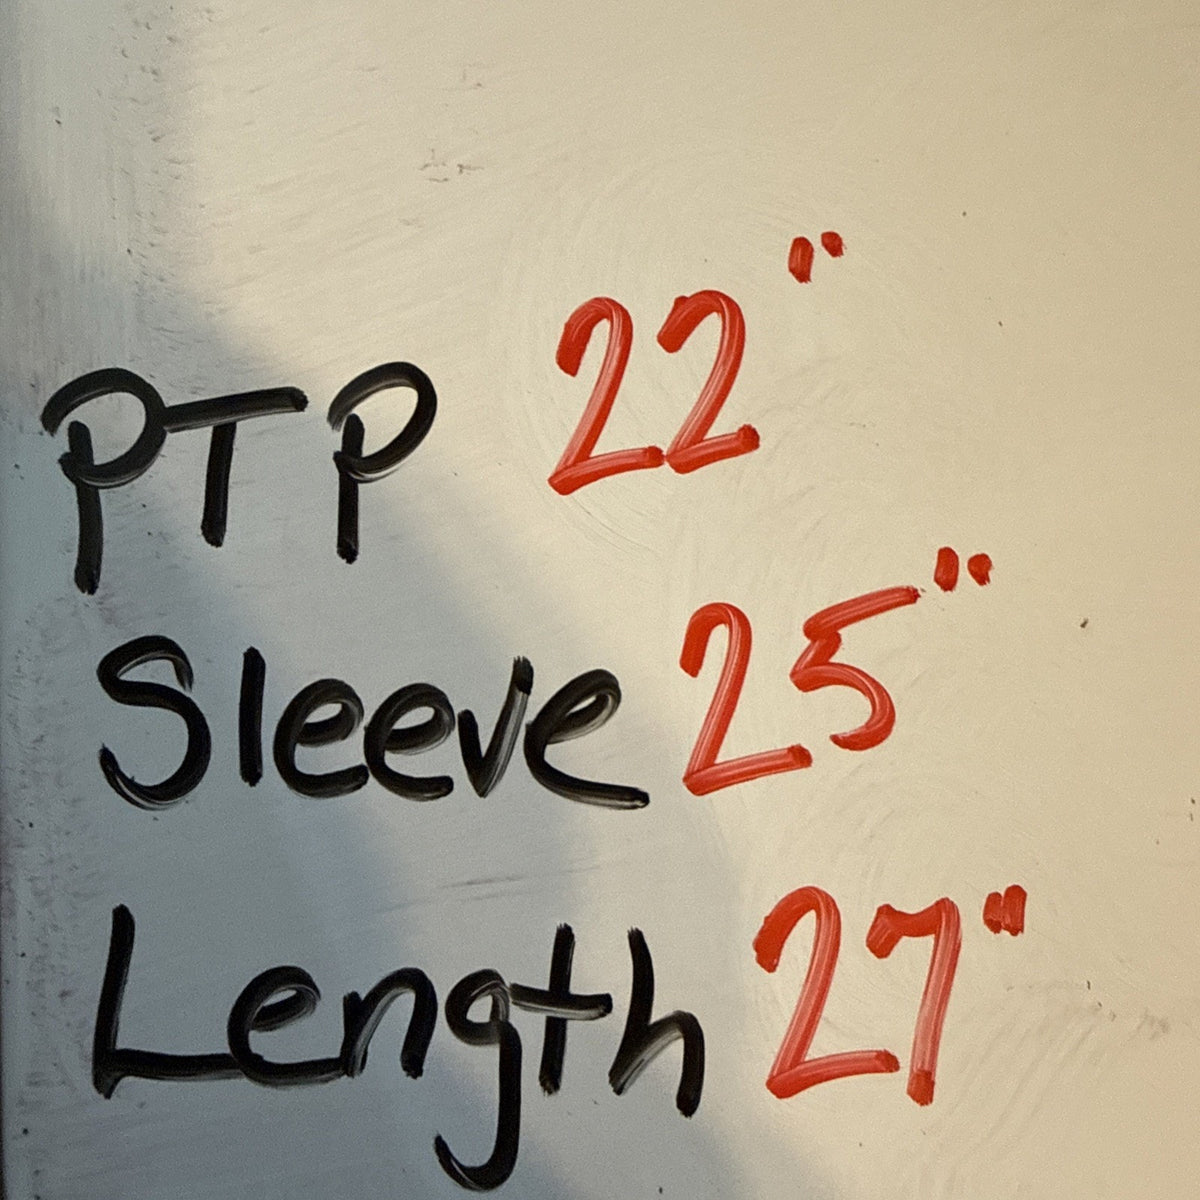 PTP 22"
Sleeve 25"
Length 27"